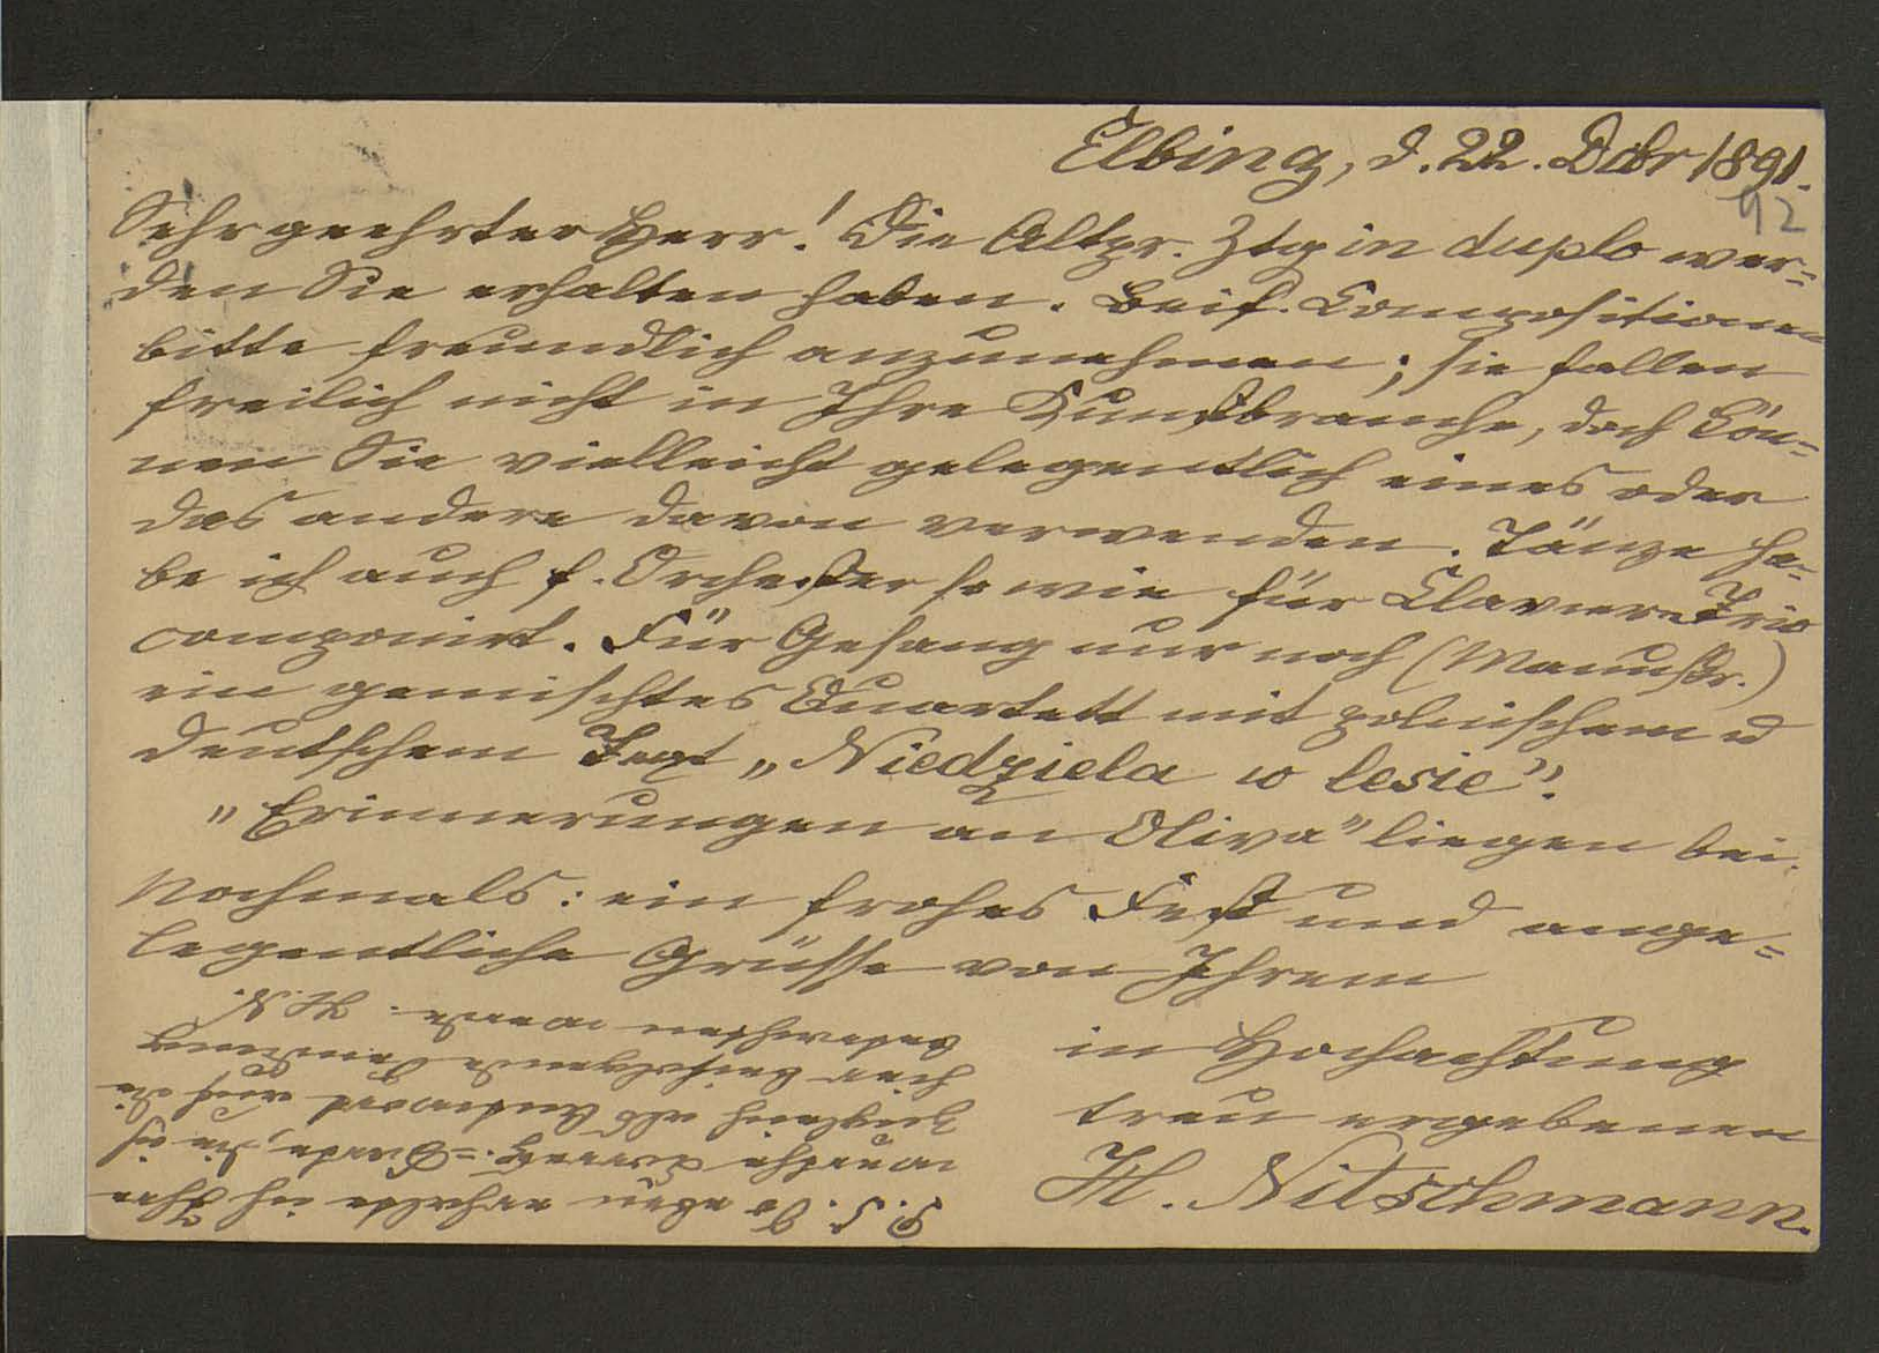 Elbing, d. 22. Dcbr 1891.
92
Sehr geehrter Herr! Die Altpr. Ztg in duplo wer=
den Sie erhalten haben. Beif. Compositionen
bitte freundlich anzunehmen; sie fallen
freilich nicht in Ihre Kunstbranche, doch kön=
nen Sie vielleicht gelegentlich eines oder
das andere davon verwenden. Tänze ha=
be ich auch f. Orchester so wie für Clavier=Trio
componirt. Für Gesang nur noch (Manuskr.)
ein gemischtes Quartett mit polnischem u
deutschem Text „Niedziela w lesie".
"Erinnerungen an Oliva" liegen bei.
Nochmals: ein frohes Fest und ange=
legentliche Grüsse von Ihrem
in Hochachtung
treu ergebenen
H. Nitschmann.
P. S. So eben erhalte ich Ihre
werthe Karte, die ich
zugleich als Antwort auf die
hier beifolgende Sendung
betrachten werde. H. N.